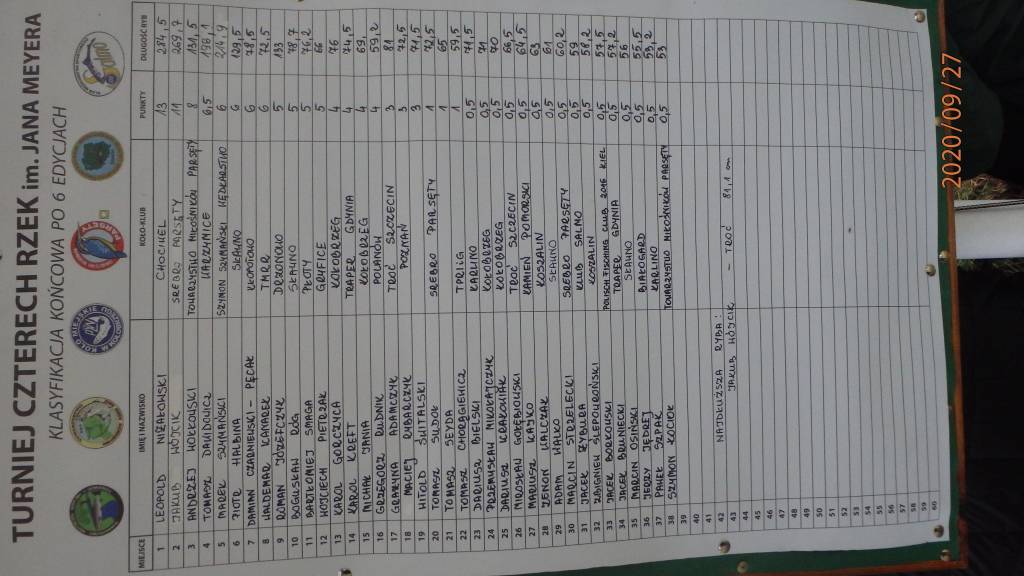 TURNIEJ CZTERECH RZEK im. JANA MEYERA
KLASYFIKACJA KOŃCOWA PO 6 EDYCJACH
MIEJSCE IMIĘ I NAZWISKO KOŁO-KLUB PUNKTY DŁUGOŚĆ RYB
1 LEOPOLD NIZAŁOWSKI CHOCIWEL 13 284,5
2 JAKUB WÓJCIK SREBRO PARSĘTY 11 269,7
3 ANDRZEJ WOŁKOWSKI TOWARZYSTWO MIŁOŚNIKÓW PARSĘTY 8 131,5
4 TOMASZ DAVIDOWICZ WARZYMICE 6,5 198,1
5 MAREK SZYMAŃSKI SZYMON SZYMAŃSKI WĘDKARSTWO 6 214,9
6 PIOTR HALBINA SŁAWNO 6 129,5
7 DAMIAN CZARNIEWSKI - PĘCAK 6 78,5
8 WALDEMAR KANAREK TMRR 6 72,5
9 ROMAN JÓZEFCZYK DRZONOWO 5 133
10 BOGUSŁAW RÓG SŁAWNO 5 78,7
11 BARTŁOMIEJ SMAGA PŁOTY 5 76,2
12 WOJCIECH PIETRZAK GRYFICE 5 66
13 KAROL GORCZYCA KOŁOBRZEG 4 76
14 KAROL KREFT TRAPER GDYNIA 4 74,5
15 MICHAŁ JANIA KOŁOBRZEG 4 69,
16 GRZEGORZ RUDNIK POLANÓW 4 59,2
17 GRAŻYNA ADAMCZYK TROĆ SZCZECIN 3 81
18 MACIEJ RYBARCZYK POZNAŃ 3 72,5
19 WITOLD ŚWITALSKI 3 71,5
20 TOMASZ SUDOŁ SREBRO PARSĘTY 1 72,5
21 TOMASZ SEYDA 1 65
22 TOMASZ CHORĄGIEWICZ TPRIIG 1 59,5
23 DARIUSZ BIELSKI KARLINO 0,5 71,5
24 PRZEMYSŁAW MIKOŁAJCZYK KOŁOBRZEG 0,5 71
25 DARIUSZ KOŁOBRZEG 0,5 70
26 MIROSŁAW GOŁĘBOWSKI TROĆ SZCZECIN 0,5 66,5
27 MARIUSZ KAJKO KAMIEŃ POMORSKI 0,5 64,5
28 ZENON WALCZAK KOSZALIN 0,5 63
29 ADAM WALKO SŁAWNO 0,5 61
30 MARCIN STRZELECKI SREBRO PARSĘTY 0,5 60,2
31 JACEK RYBUŁA KLUB SALMO 0,5 59
32 ZBIGNIEW KOSZALIN 0,5 58,2
33 JACEK BORKOWSKI POLISCH FISCHING CLUB 2016 KIEL 0,5 57,5
34 JACEK BRUNIECKI TRAPER GDYNIA 0,5 57,2
35 MARCIN OSIŃSKI SŁAWNO 0,5 56
36 JERZY JĘDREJ BIAŁOGARD 0,5 55,5
37 PAWEŁ SZPAK KARLINO 0,5 53,2
38 SZYMON KOCIOK TOWARZYSTWO MIŁOŚNIKÓW PARSĘTY 0,5 53
39
40
41
42 NAJDŁUŻSZA RYBA:
43 JAKUB WÓJCIK - TROĆ 81,1 cm
44
45
46
47
48
49
50
51
52
53
54
55
56
57
58
59
60
2020/09/27